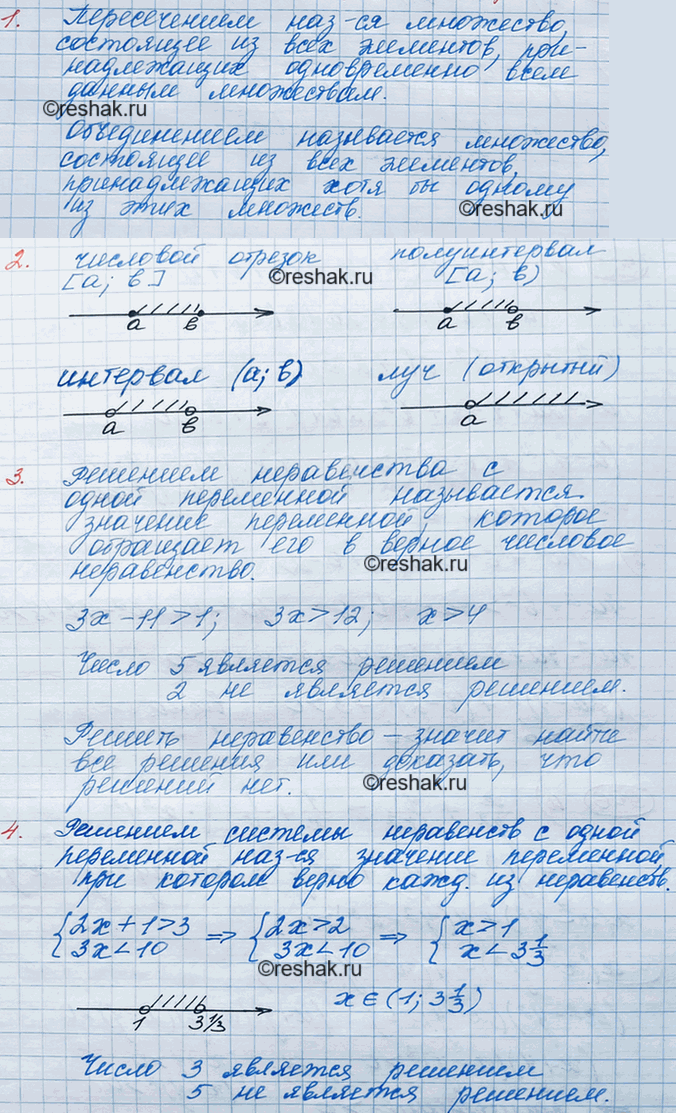 1. Пересечением наз-ся множество,
состоящее из всех элементов, при-
надлежащих одновременно всем
данным множествам.
©reshak.ru
Объединением называется множество,
состоящее из всех элементов,
принадлежащих хотя бы одному
из этих множеств.
©reshak.ru
2. числовой отрезок полуинтервал
[a; в] [a; в)
©reshak.ru
a в a в
интервал (a; в) луч (открытый)
a в a
3. Решением неравенства с
одной переменной называется
значение переменной, которое
обращает его в верное числовое
неравенство.
©reshak.ru
3x - 11 > 1; 3x > 12; x > 4
Число 5 является решением
2 не является решением.
Решить неравенство – значит найти
все решения или доказать, что
решений нет.
©reshak.ru
4. Решением системы неравенств с одной
переменной наз-ся значение переменной,
при котором верно кажд. из неравенств.
{2x + 1 > 3 ⇒ {2x > 2 ⇒ {x > 1
3x < 10 3x < 10 x < 3 1/3
©reshak.ru
x ∈ (1; 3 1/3)
1 3 1/3
Число 3 является решением
5 не является решением.